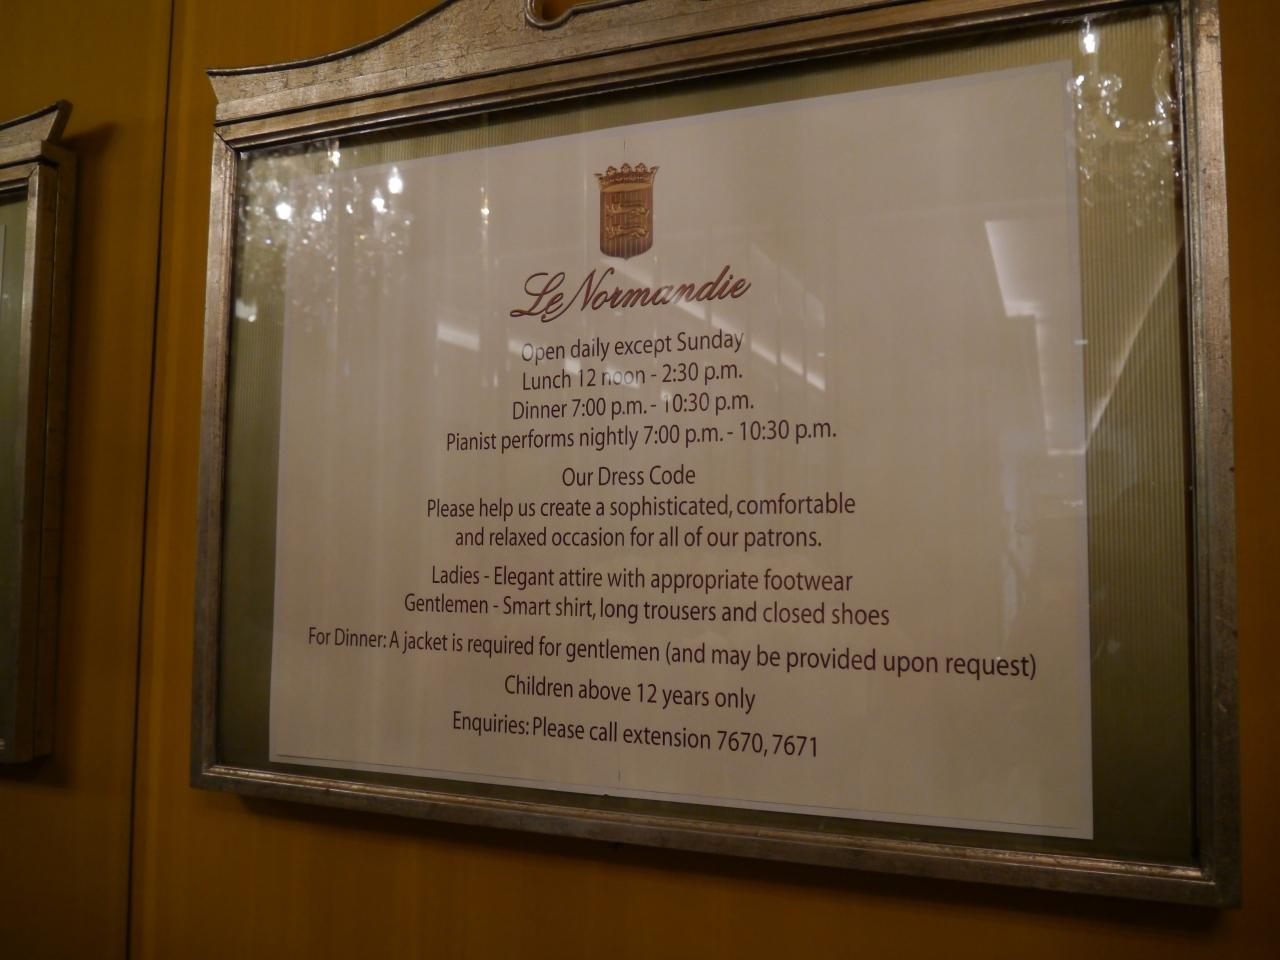 Le Normandie
Open daily except Sunday
Lunch 12 noon - 2:30 p.m.
Dinner 7:00 p.m. - 10:30 p.m.
Pianist performs nightly 7:00 p.m. - 10:30 p.m.
Our Dress Code
Please help us create a sophisticated, comfortable
and relaxed occasion for all of our patrons.
Ladies - Elegant attire with appropriate footwear
Gentlemen - Smart shirt, long trousers and closed shoes
For Dinner: A jacket is required for gentlemen (and may be provided upon request)
Children above 12 years only
Enquiries: Please call extension 7670, 7671